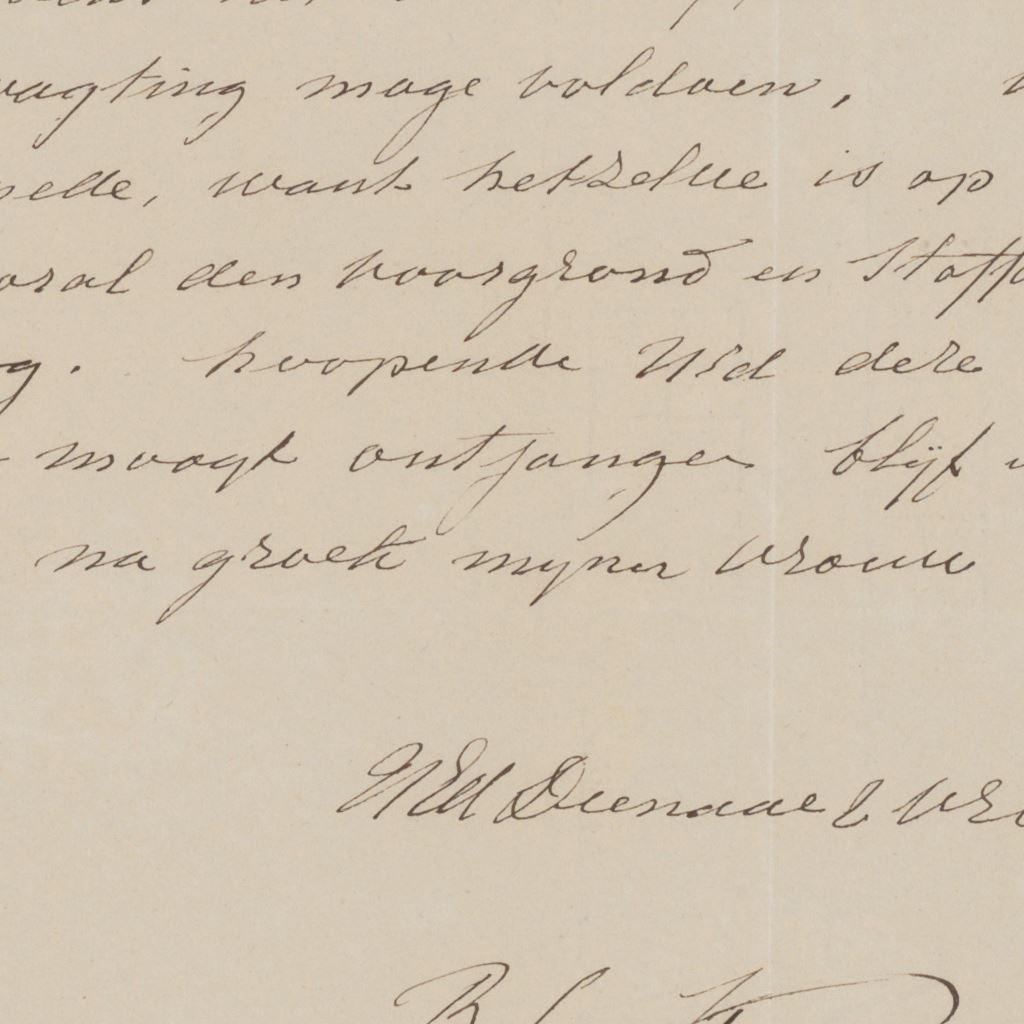 wagting mage voldoen,
want hetzelve is op
den voorgrond en Stoffa
hoopende UEd deze
moogt ontfangen blijf
na groete mijner vrouw
UEd Dienaar & Vri